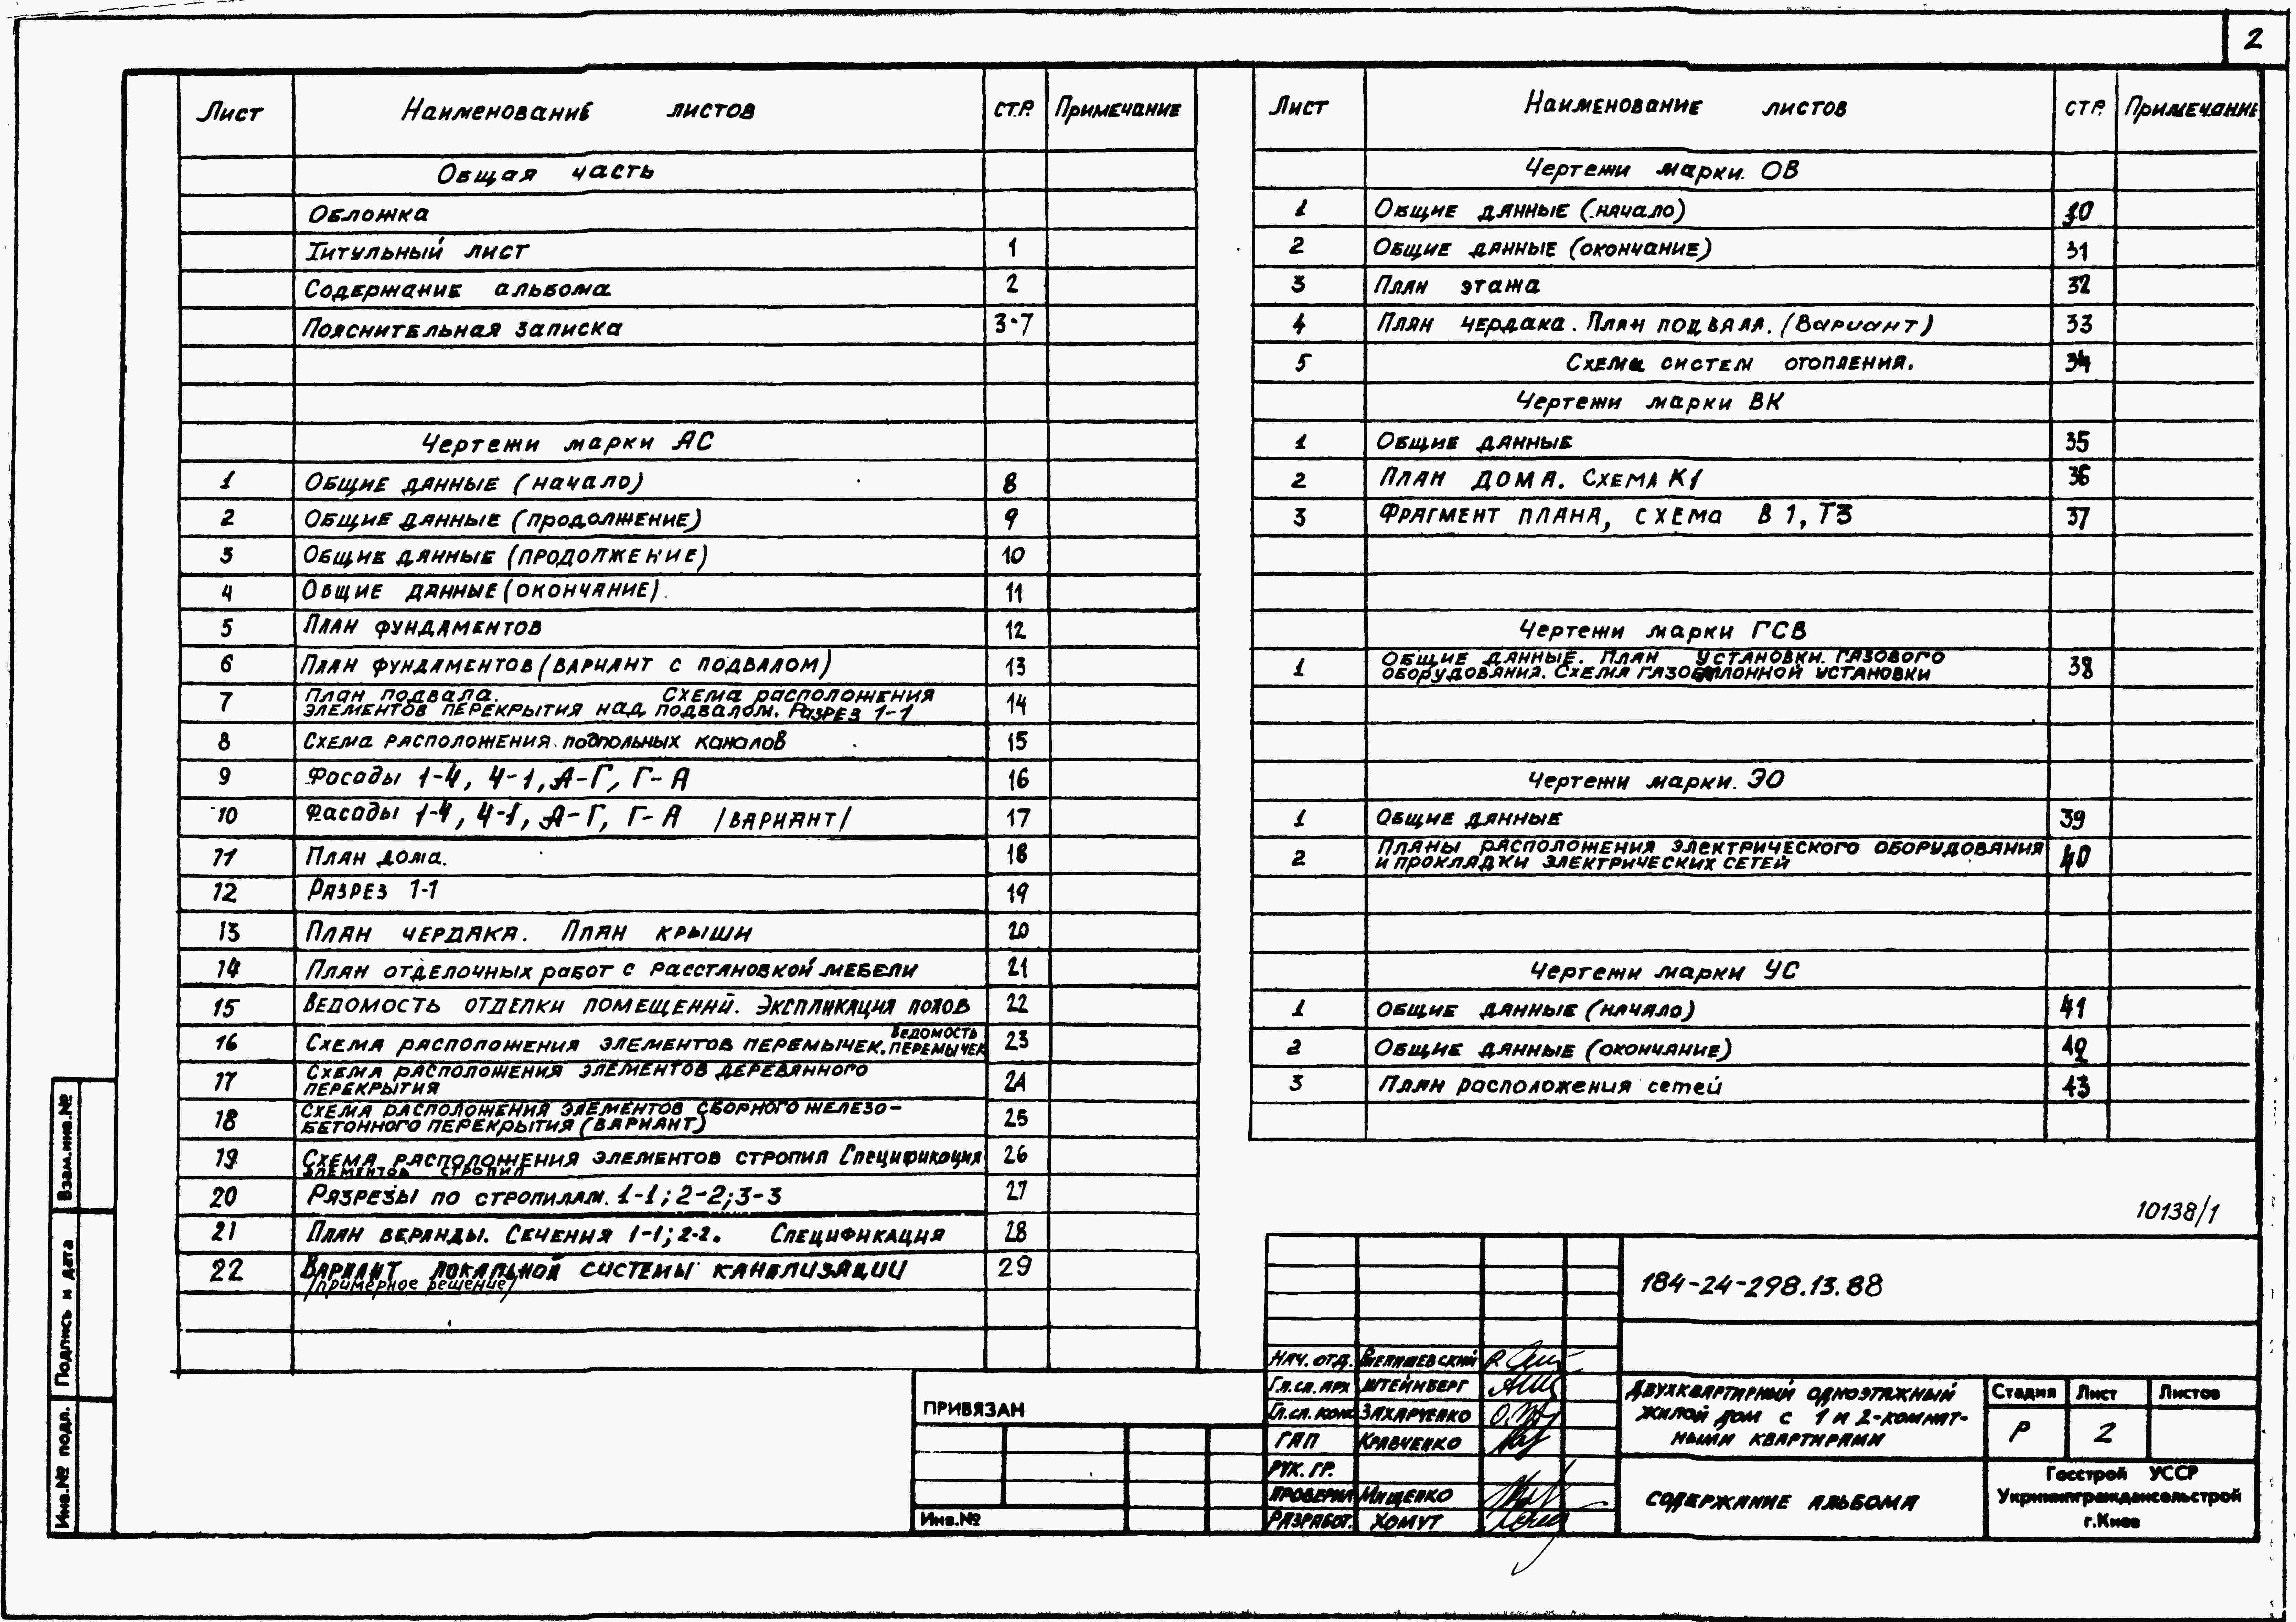 2
Лист Наименование листов стр. Примечание
Общая часть
Обложка
Титульный лист 1
Содержание альбома 2
Пояснительная записка 3-7
Чертежи марки АС
1 Общие данные (начало) 8
2 Общие данные (продолжение) 9
3 Общие данные (продолжение) 10
4 Общие данные (окончание). 11
5 План фундаментов 12
6 План фундаментов (вариант с подвалом) 13
7 План подвала. Схема расположения
элементов перекрытия над подвалом. Разрез 1-1 14
8 Схема расположения подпольных каналов 15
9 Фасады 1-4, 4-1, А-Г, Г-А 16
10 Фасады 1-4, 4-1, А-Г, Г-А /вариант/ 17
11 План дома. 18
12 Разрез 1-1 19
13 План чердака. План крыши 20
14 План отделочных работ с расстановкой мебели 21
15 Ведомость отделки помещений. Экспликация полов 22
16 Схема расположения элементов перемычек. Ведомость перемычек 23
17 Схема расположения элементов деревянного
перекрытия 24
18 Схема расположения элементов сборного железо-
бетонного перекрытия (вариант) 25
19 Схема расположения элементов стропил Спецификация 26
элементов стропил
20 Разрезы по стропилам. 1-1; 2-2; 3-3 27
21 План веранды. Сечения 1-1; 2-2. Спецификация 28
22 Вариант локальной системы канализации 29
/примерное решение/
Лист Наименование листов стр. Примечание
Чертежи марки ОВ
1 Общие данные (начало) 30
2 Общие данные (окончание) 31
3 План этажа 32
4 План чердака. План подвала. (Вариант) 33
5 Схема систем отопления. 34
Чертежи марки ВК
1 Общие данные 35
2 План дома. Схема К1 36
3 Фрагмент плана, схема В1, Т3 37
Чертежи марки ГСВ
1 Общие данные. План установки газового
оборудования. Схема газобаллонной установки 38
Чертежи марки ЭО
1 Общие данные 39
2 Планы расположения электрического оборудования
и прокладки электрических сетей 40
Чертежи марки УС
1 Общие данные (начало) 41
2 Общие данные (окончание) 42
3 План расположения сетей 43
10138/1
184-24-298.13.88
Нач. отд.
Гл.сп. арх Штейнберг
Гл.сп. конс Захарченко
ГАП Кравченко
Рук. гр.
Проверил Мищенко
Разработ. Хомут
Двухквартирный одноэтажный
жилой дом с 1 и 2-комнат-
ными квартирами
Стадия Лист Листов
Р 2
Содержание альбома
Госстрой УССР
Укрниипграждансельстрой
г.Киев
Привязан
Инв.№
Взам.инв.№
Подпись и дата
Инв.№ подл.